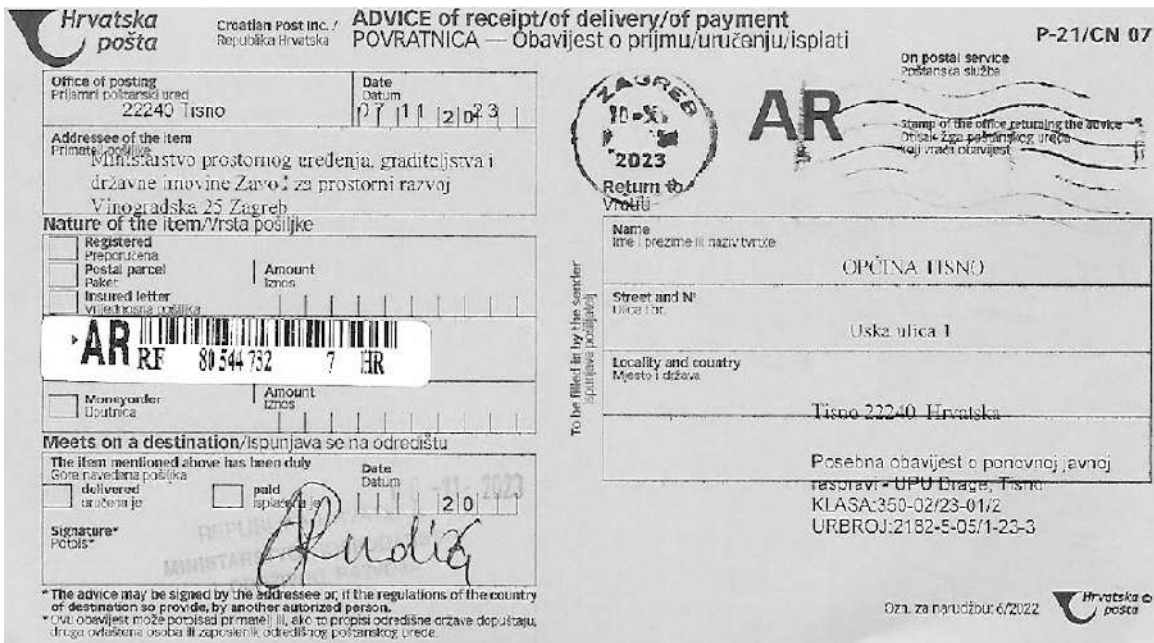 Hrvatska
pošta
Croatian Post Inc. /
Republika Hrvatska
ADVICE of receipt/of delivery/of payment
POVRATNICA — Obavijest o prijmu/uručenju/isplati
P-21/CN 07
Office of posting
Prijamni poštanski ured
22240 Tisno
Date
Datum
07 11 2023
Addressee of the item
Primatelj pošiljke
Ministarstvo prostornog uređenja, graditeljstva i
državne imovine Zavod za prostorni razvoj
Vinogradska 25 Zagreb
Nature of the item/Vrsta pošiljke
Registered
Preporučena
Postal parcel
Paket
Amount
Iznos
Insured letter
Vrijednosna pošiljka
AR
RF 80 544 732 7 HR
Moneyorder
Uputnica
Amount
Iznos
Meets on a destination/Ispunjava se na odredištu
The item mentioned above has been duly
Gore navedena pošiljka
delivered
uručena je
paid
isplaćena je
Date
Datum
20
-11- 2023
Signature*
Potpis*
* The advice may be signed by the addressee or, if the regulations of the country
of destination so provide, by another autorized person.
* Ovu obavijest može potpisati primatelj ili, ako to propisi odredišne države dopuštaju,
druga ovlaštena osoba ili zaposlenik odredišnog poštanskog ureda.
ZAGREB
2023
AR
On postal service
Poštanska služba
Stamp of the office returning the advice
Otisak žiga poštanskog ureda
koji vraća obavijest
Return to
Vratiti
To be filled in by the sender
Ispunjava pošiljatelj
Name
Ime i prezime ili naziv tvrtke
OPĆINA TISNO
Street and Nº
Ulica i br.
Uska ulica 1
Locality and country
Mjesto i država
Tisno 22240 Hrvatska
Posebna obavijest o ponovnoj javnoj
raspravi - UPU Drage, Tisno
KLASA:350-02/23-01/2
URBROJ:2182-5-05/1-23-3
Ozn. za narudžbu: 6/2022
Hrvatska
pošta